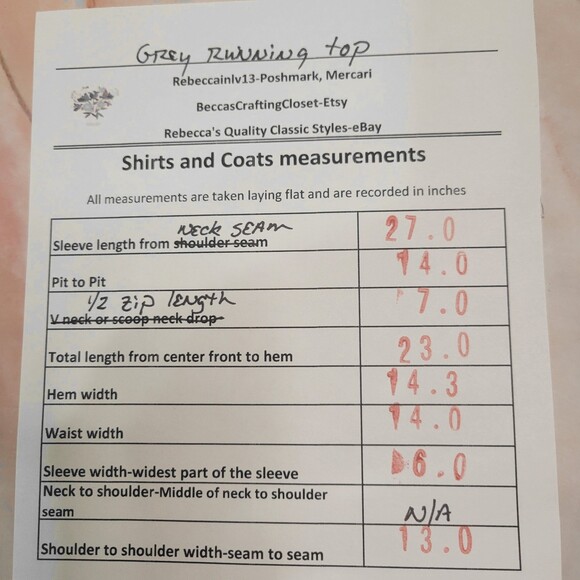 Grey Running top
Rebeccainlv13-Poshmark, Mercari
BeccasCraftingCloset-Etsy
Rebecca's Quality Classic Styles-eBay
Shirts and Coats measurements
All measurements are taken laying flat and are recorded in inches
Neck SEAM
Sleeve length from shoulder seam 27.0
Pit to Pit 14.0
1/2 Zip length
V neck or scoop neck drop 7.0
Total length from center front to hem 23.0
Hem width 14.3
Waist width 14.0
Sleeve width-widest part of the sleeve 6.0
Neck to shoulder-Middle of neck to shoulder
seam N/A
Shoulder to shoulder width-seam to seam 13.0